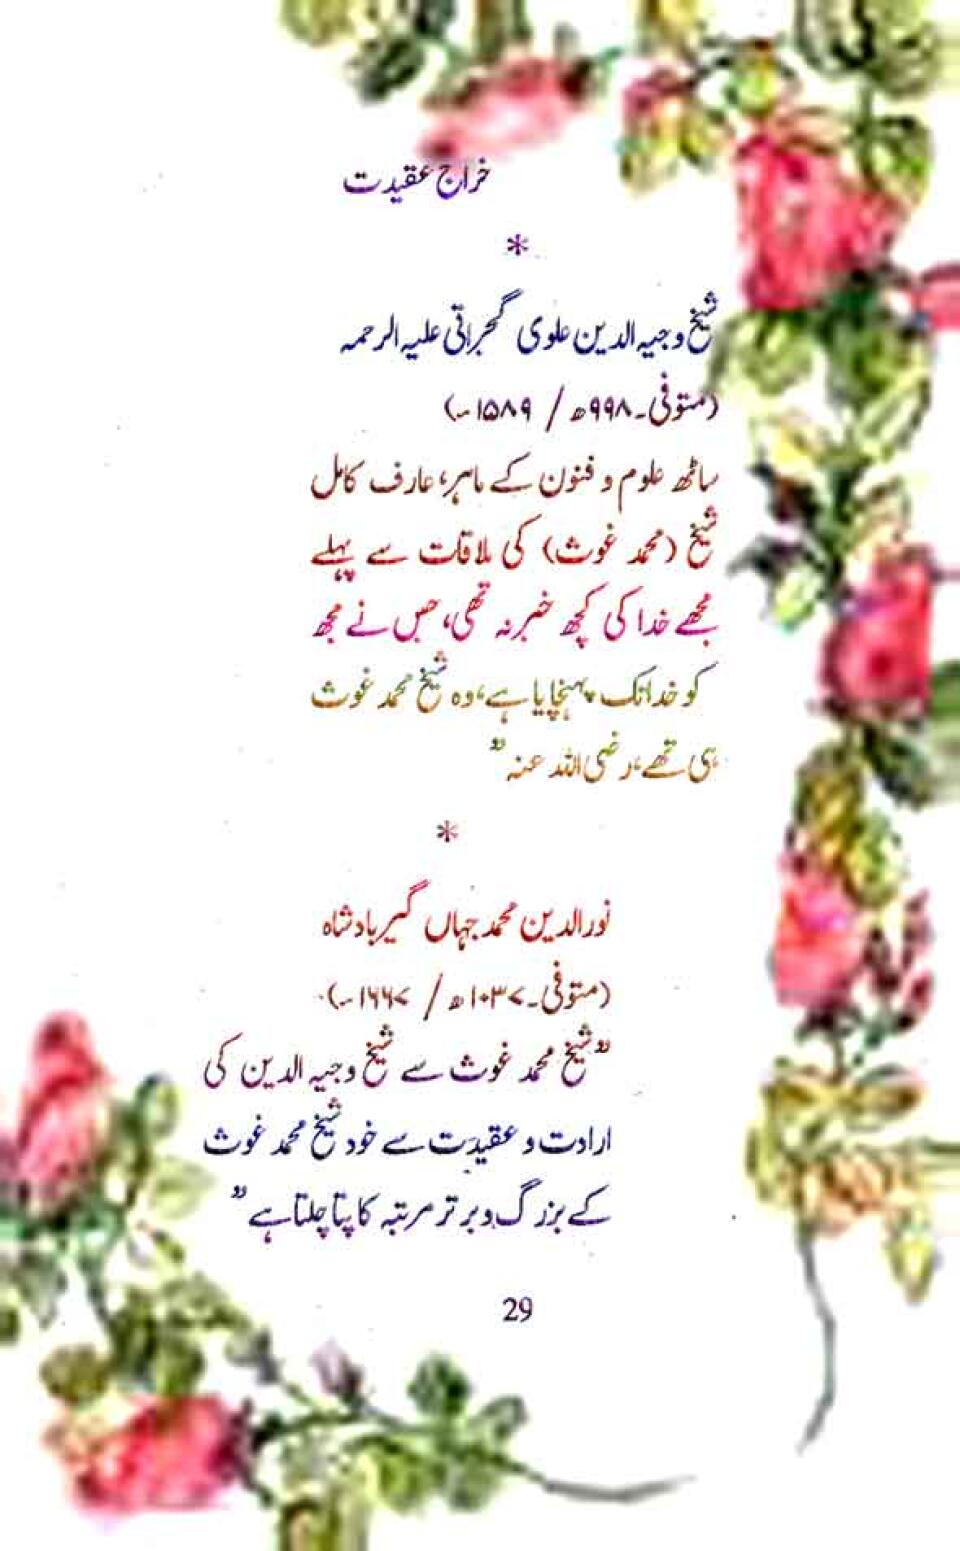 خراج عقیدت
*
شیخ وجیہ الدین علوی گجراتی علیہ الرحمہ
(متوفی۔۹۹۸ھ / ۱۵۸۹ء)
ساٹھ علوم و فنون کے ماہر، عارف کامل
شیخ (محمد غوث) کی ملاقات سے پہلے
مجھے خدا کی کچھ خبر نہ تھی، جس نے مجھ
کو خدا تک پہنچایا ہے، وہ شیخ محمد غوث
ہی تھے، رضی اللہ عنہ”
*
نورالدین محمد جہاں گیر بادشاہ
(متوفی۔۱۰۳۷ھ / ۱۶۶۷ء)
“شیخ محمد غوث سے شیخ وجیہ الدین کی
ارادت و عقیدت سے خود شیخ محمد غوث
کے بزرگ و برتر مرتبہ کا پتا چلتا ہے”
29